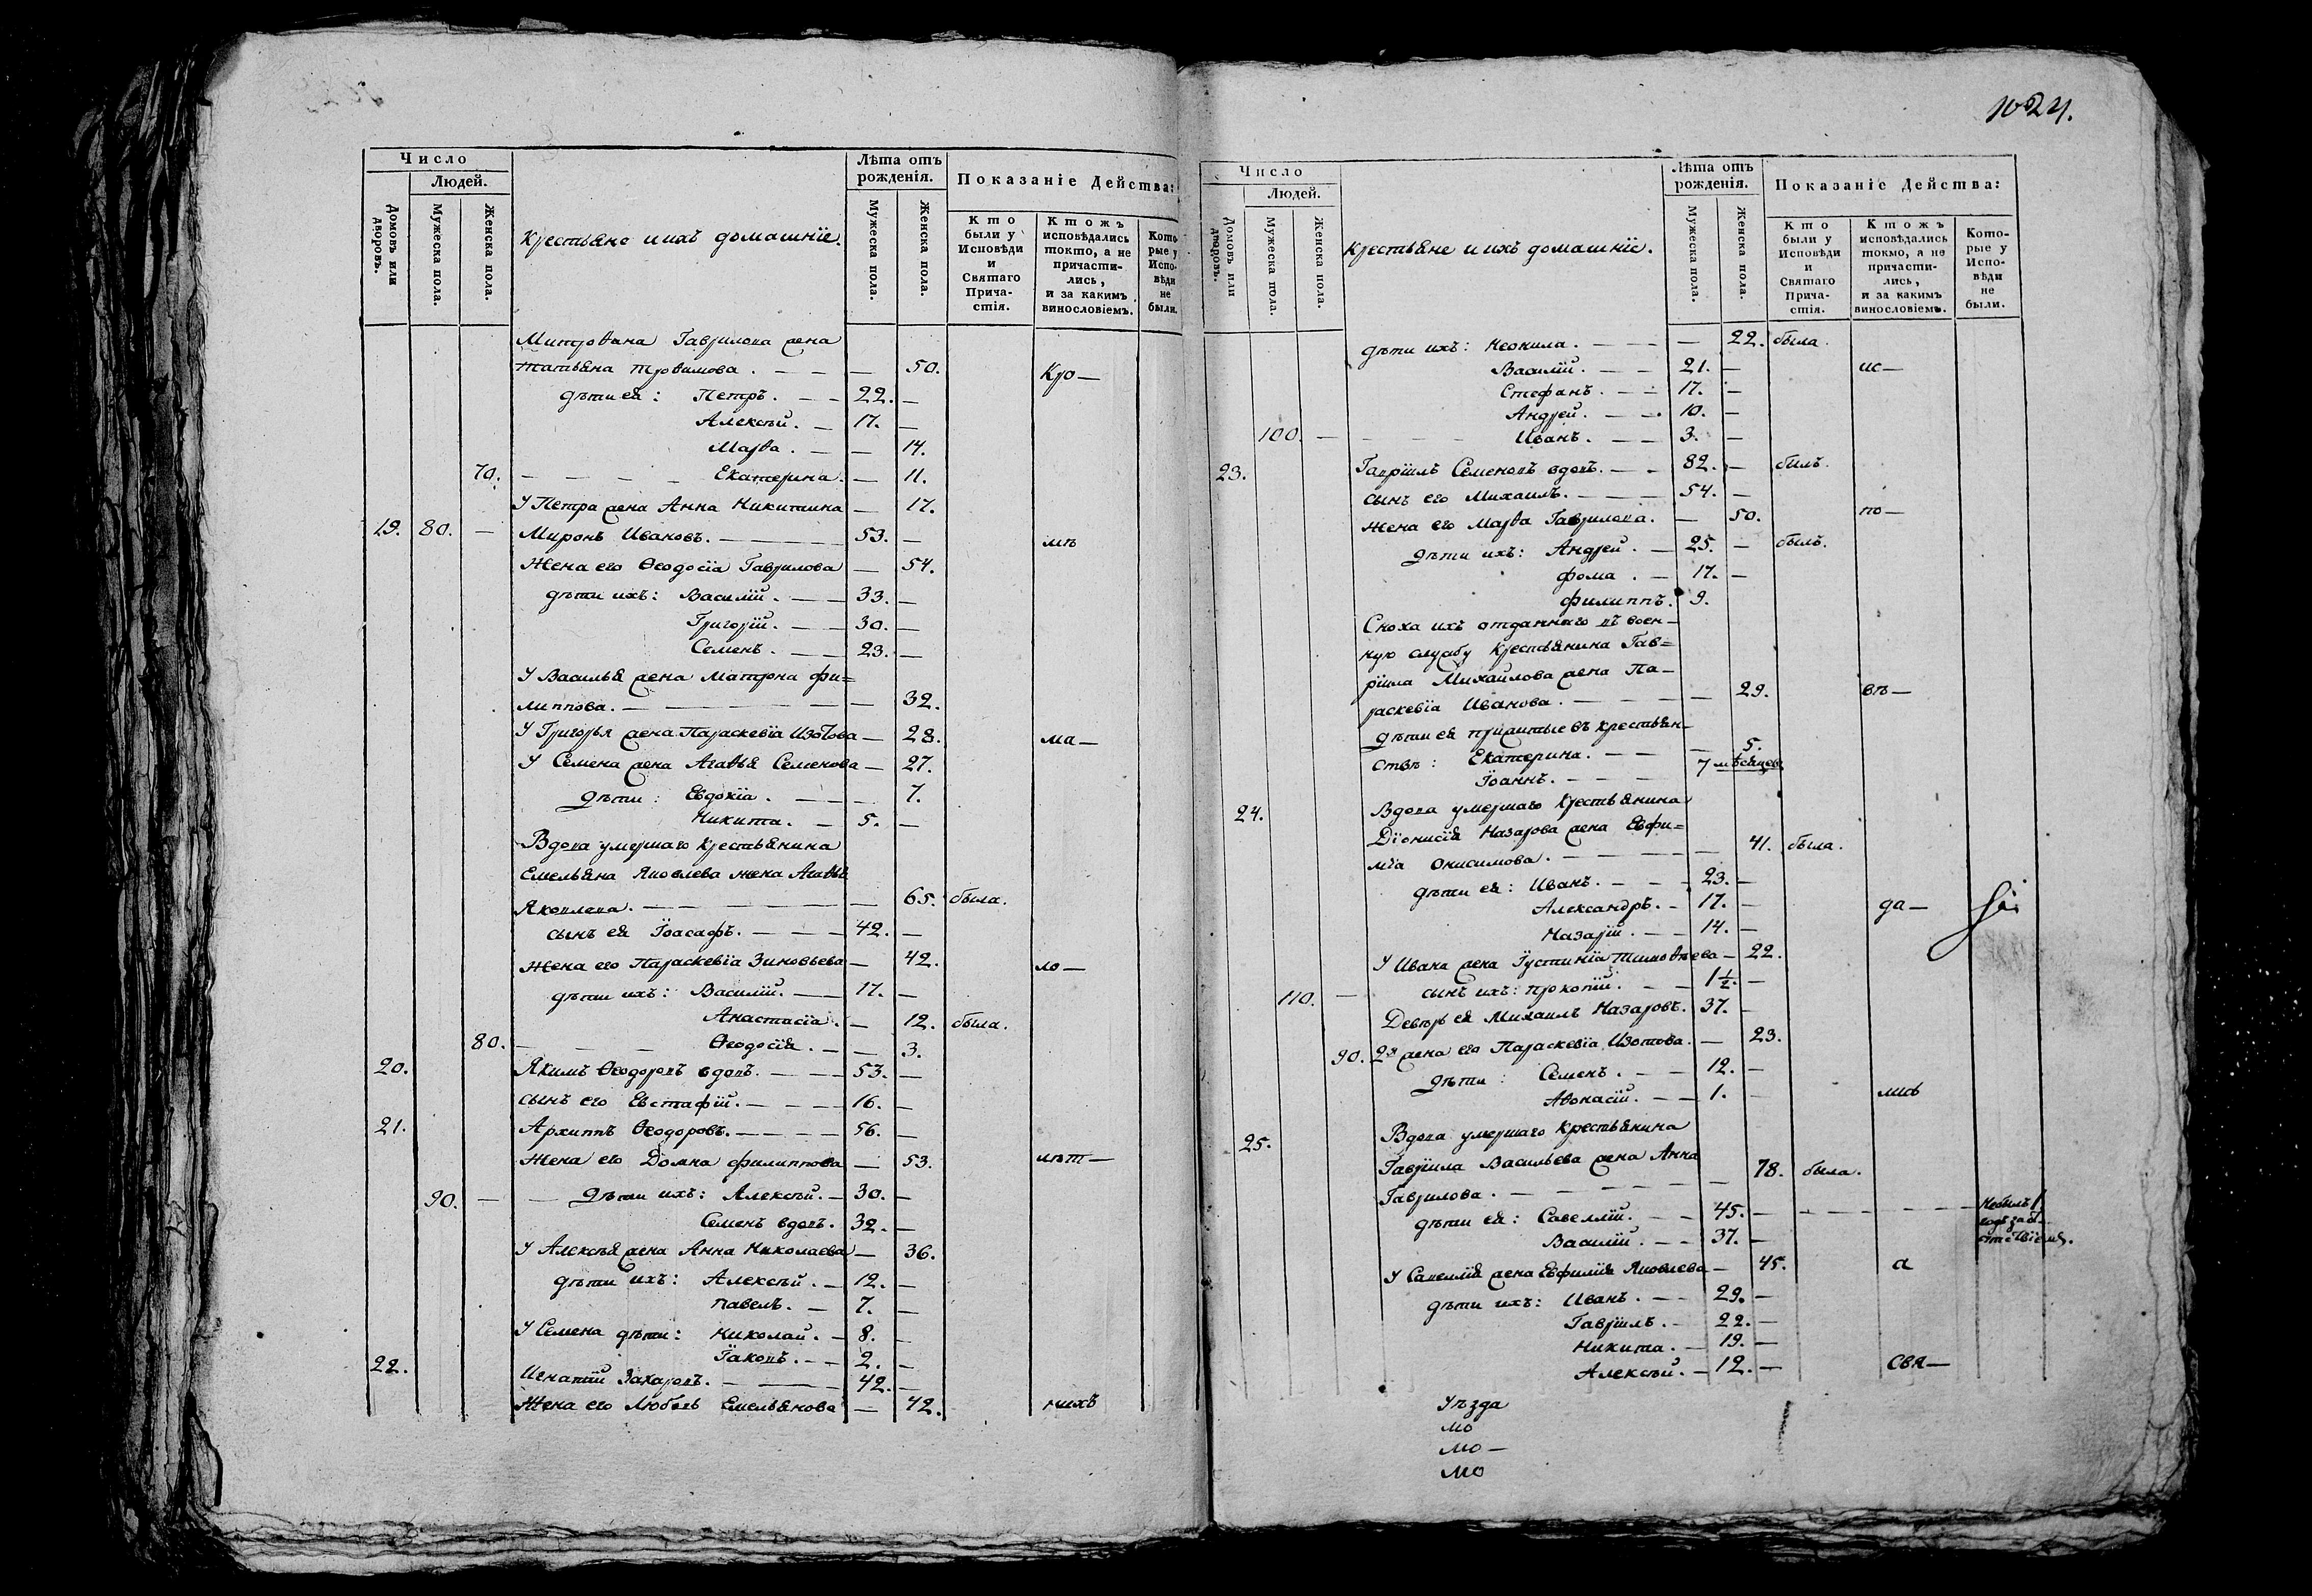 1024.
Число
Людей.
Домовъ или дворовъ.
Мужеска пола.
Женска пола.
Крестьяне и ихъ домашніе.
Лѣта отъ рожденія.
Мужеска пола.
Женска пола.
Показаніе Действа:
Кто были у Исповѣди и Святаго Прича-стія.
Ктожъ исповѣдались токмо, а не причасти-лись, и за какимъ винословіемъ.
Кото-рые у Испо-вѣди не были.
Митрофана Гаврилова жена
Татьяна Трофимова. — — — — 50. Кро—
дѣти ея: Петръ. — — 22. —
Алексѣй. — 17. —
Марѳа. — — 14.
70. — — — — Екатерина. — 11.
У Петра жена Анна Никитина — 17.
19. 80. — Миронъ Ивановъ. — — — 53. — мѣ
Жена его Ѳеодосіа Гаврилова — 54.
дѣти ихъ: Василій. — — 33. —
Григорій. — — 30. —
Семенъ. — — 23. —
У Василья жена Матрона Фи=
липпова. — — — — — 32.
У Григорья жена Параскевіа Изотова — 28. ма—
У Семена жена Агаѳья Семенова — 27.
дѣти: Евдокіа. — — — 7.
Никита. — 5. —
Вдова умершаго Крестьянина
Емельяна Яковлева жена Агаѳья
Яковлева. — — — — — 65. была.
сынъ ея Іоасафъ. — — — 42. —
Жена его Параскевіа Зиновьева — 42. ло—
дѣти ихъ: Василій. — — 17. —
Анастасіа. — 12. была.
80. — — — Ѳеодосія. — — 3.
20. Якимъ Ѳеодоровъ вдовъ. — — — 53. —
сынъ его Евстафій. — — — 16. —
21. Архиппъ Ѳеодоровъ. — — — 56. —
Жена его Домна Филиппова — 53. лѣт—
90. — — дѣти ихъ: Алексѣй. — 30. —
Семенъ вдовъ. 32. —
У Алексѣя жена Анна Николаева — 36.
дѣти ихъ: Алексѣй. — 12. —
Павелъ. — 7. —
У Семена дѣти: Николай. — 8. —
Іаковъ. — — 2. —
22. Игнатій Захаровъ. — — — 42. —
Жена его Любовь Емельянова — 42. нихъ
Число
Людей.
Домовъ или дворовъ.
Мужеска пола.
Женска пола.
Крестьяне и ихъ домашніе.
Лѣта отъ рожденія.
Мужеска пола.
Женска пола.
Показаніе Действа:
Кто были у Исповѣди и Святаго Прича-стія.
Ктожъ исповѣдались токмо, а не причасти-лись, и за какимъ винословіемъ.
Кото-рые у Испо-вѣди не были.
дѣти ихъ: Неонила. — — — 22. была.
Василій. — — 21. — ис—
Стефанъ. — — 17. —
Андрей. — — 10. —
100. — — — — Иванъ. — — 3. —
23. Гавріилъ Семеновъ вдовъ. — — 82. — былъ.
сынъ его Михаилъ. — — — 54. —
Жена его Марѳа Гаврилова. — 50. по—
дѣти ихъ: Андрей. — 25. — былъ.
Фома. — 17. —
Филиппъ. 9.
Сноха ихъ отданнаго въ воен—
ную службу Крестьянина Гав=
ріила Михайлова жена Па—
раскевіа Иванова. — — — — 29. вѣ—
дѣти ея прижитые въ крестьян—
ствѣ: Екатерина. — — — 5.
Іоаннъ. — — — 7 мѣсяцев
24. Вдова умершаго Крестьянина
Діонисія Назарова жена Евфи=
міа Онисимова. — — — — 41. была.
дѣти ея: Иванъ. — — — 23. —
Александръ. — 17. — да—
Назарій. — — 14. —
У Ивана жена Іустиніа Тимоѳеева — 22.
110. — сынъ ихъ: Прокопій. — — 1½. —
Деверь ея Михаилъ Назаровъ. 37. —
90. 2я жена его Параскевіа Изотова. — 23.
дѣти: Семенъ. — — 12. —
Аѳонасій. — — 1. — лись
25. Вдова умершаго Крестьянина
Гавріила Васильева жена Анна
Гаврилова. — — — — — 78. была.
дѣти ея: Савеллій. — — 45. — — — — — Небылъ
Василій. — — 37. —
У Савеллія жена Евфимія Яковлева — 45. а
дѣти ихъ: Иванъ. — — 29. —
Гавріилъ. — 22. —
Никита. — 19. —
Алексѣй. — 12. — свя—
Уѣзда
мо
мо—
мо